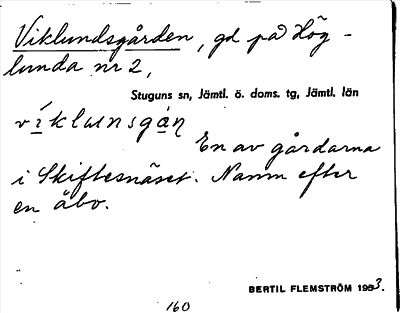 Viklundsgården, gd på Hög-
lunda nr 2,
Stuguns sn, Jämtl. ö. doms. tg, Jämtl. län
En av gårdarna
i Skiftesnäset. Namn efter
en åbo.
BERTIL FLEMSTRÖM 1953.
160